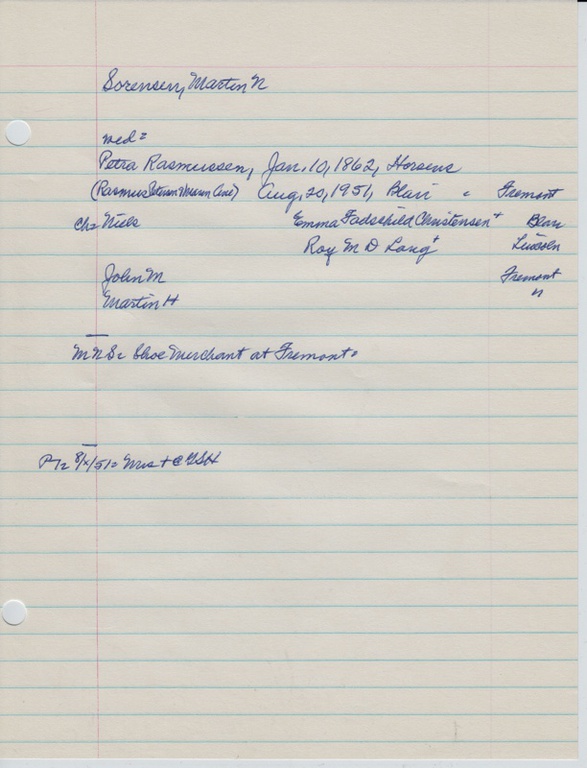 Sorensen, Martin N
med =
Petra Rasmussen, Jan. 10, 1862, Horsens
(Rasmus Aug, 20, 1951, Blair - Fremont
Ch = Niels Emma Fodschild Christensen + Blair
Roy M D Long + Lincoln
John M Fremont
Martin H "
M N S = Shoe Merchant at Fremont.
8/x/51 =